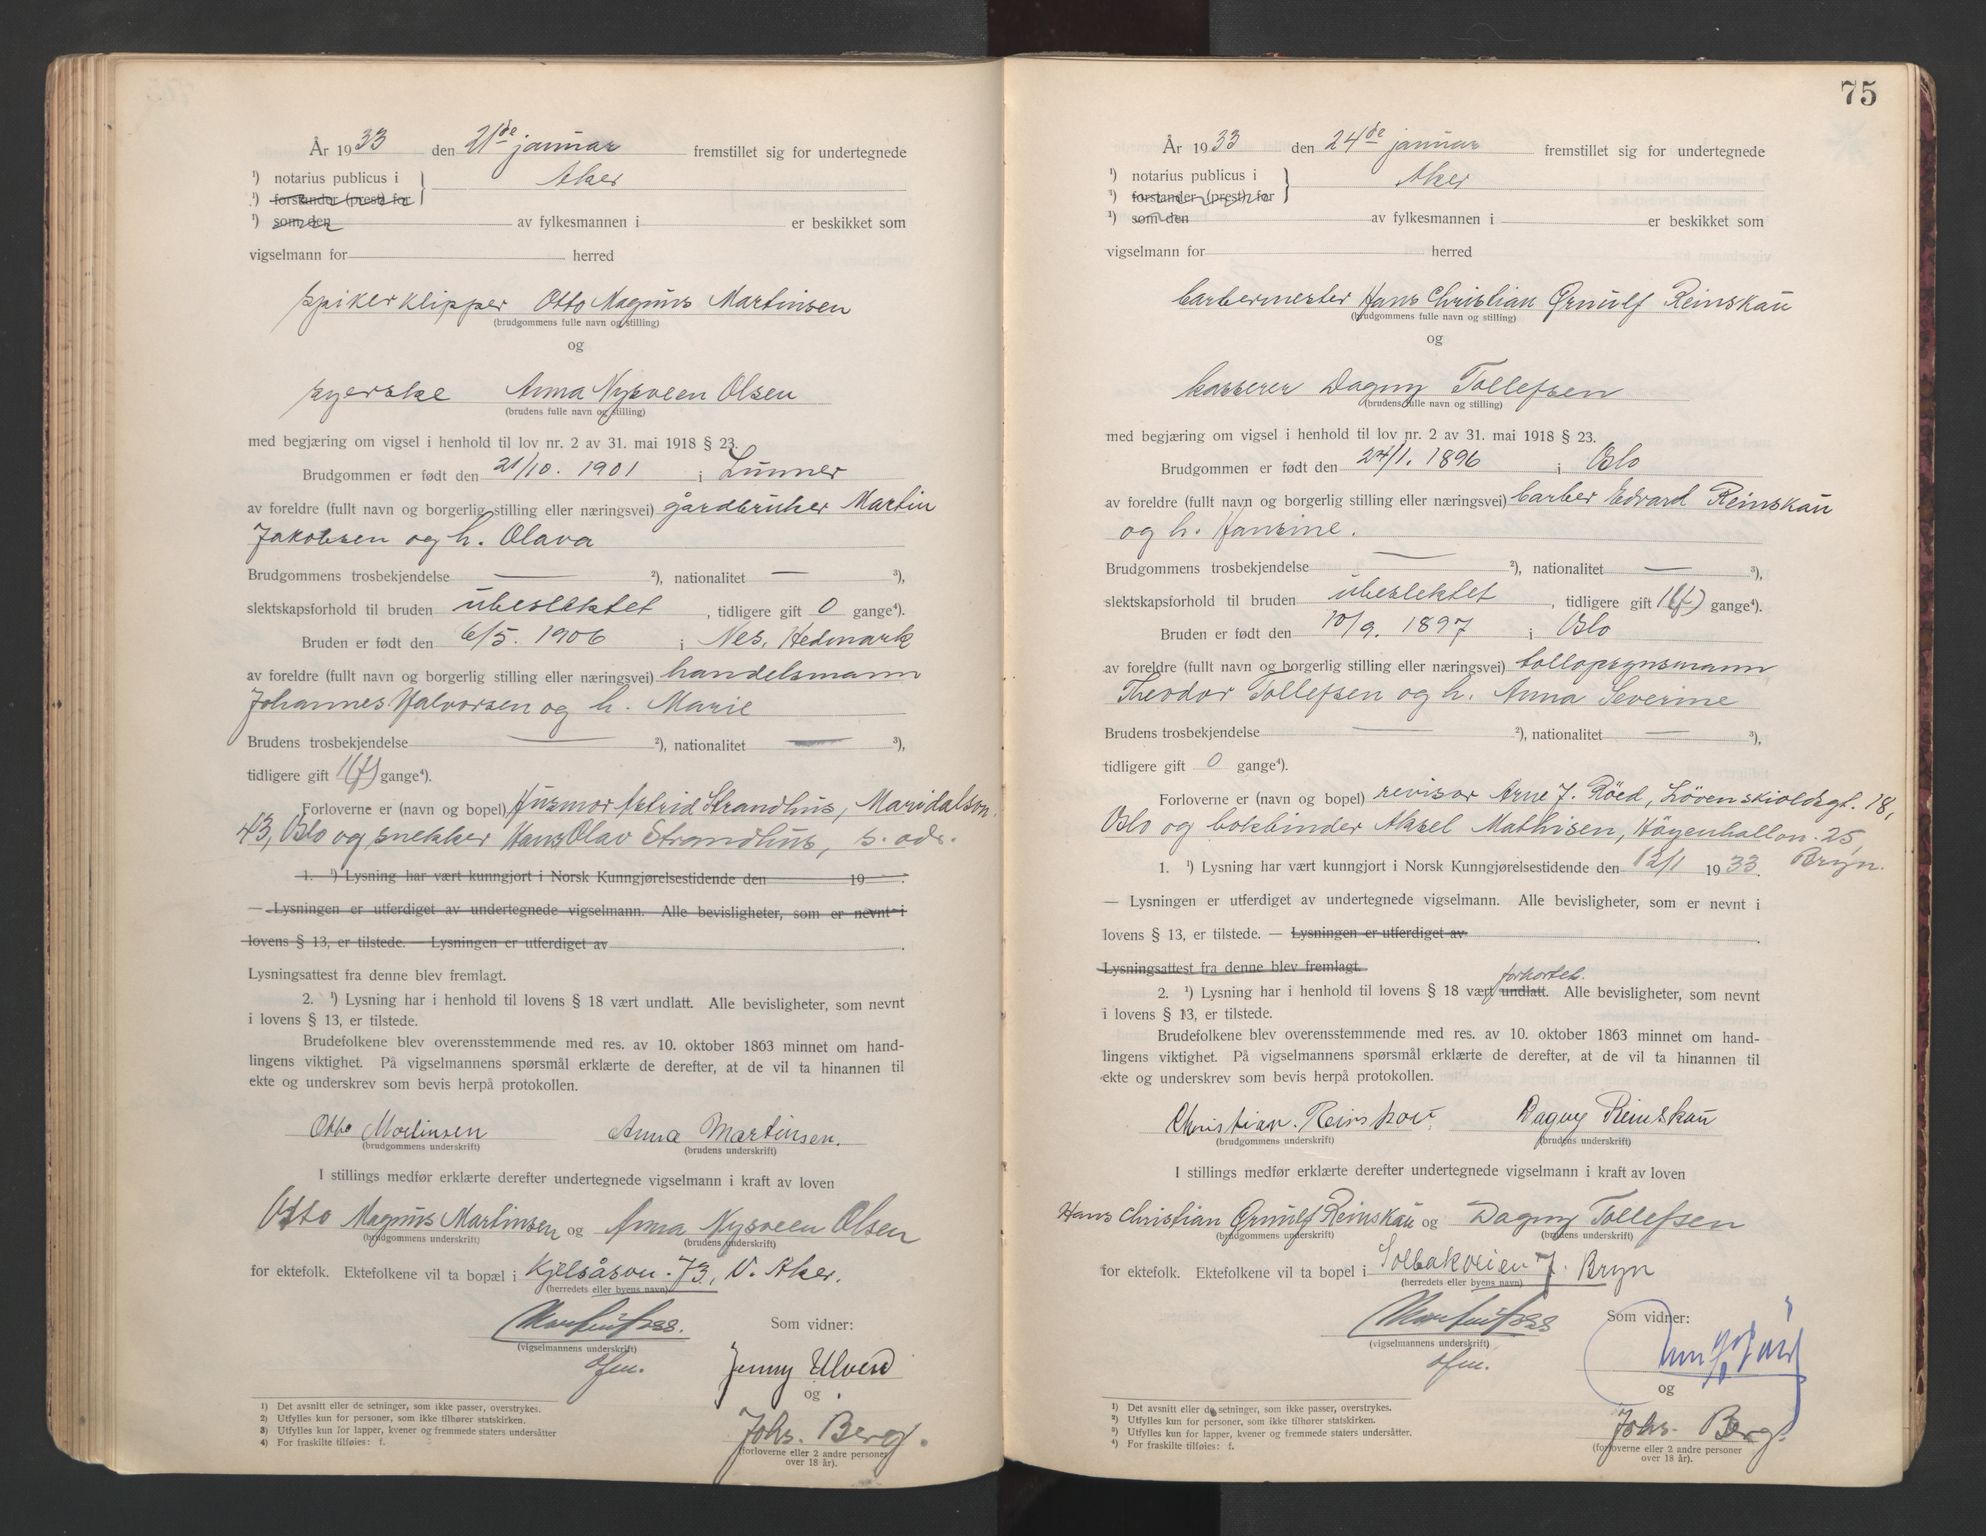 År 1933 den 21de januar fremstillet sig for undertegnede
¹) notarius publicus i } Aker
¹) forstander (prest) for
¹) som den av fylkesmannen i er beskikket som
vigselmann for herred
spikerklipper Otto Magnus Martinsen
(brudgommens fulle navn og stilling)
og
syerske Anna Nysveen Olsen
(brudens fulle navn og stilling)
med begjæring om vigsel i henhold til lov nr. 2 av 31. mai 1918 § 23.
Brudgommen er født den 21/10. 1901 i Lunner
av foreldre (fullt navn og borgerlig stilling eller næringsvei) gårdbruker Martin
Jakobsen og h. Olava
Brudgommens trosbekjendelse — ²), nationalitet — ³),
slektskapsforhold til bruden ubeslektet, tidligere gift 0 gange⁴).
Bruden er født den 6/5. 1906 i Nes, Hedmark
av foreldre (fullt navn og borgerlig stilling eller næringsvei) handelsmann
Johannes Halvorsen og h. Marie
Brudens trosbekjendelse — ²), nationalitet — ³),
tidligere gift 1(f) gange⁴).
Forloverne er (navn og bopel) Husmor Astrid Strandhus, Maridalsvn.
43, Oslo og snekker Hans Olav Strandhus, s. adr.
1. ¹) Lysning har vært kunngjort i Norsk Kunngjørelsestidende den 19 .
— Lysningen er utferdiget av undertegnede vigselmann. Alle bevisligheter, som er nevnt i
lovens § 13, er tilstede. — Lysningen er utferdiget av .
Lysningsattest fra denne blev fremlagt.
2. ¹) Lysning har i henhold til lovens § 18 vært undlatt. Alle bevisligheter, som nevnt
i lovens § 13, er tilstede.
Brudefolkene blev overensstemmende med res. av 10. oktober 1863 minnet om hand-
lingens viktighet. På vigselmannens spørsmål erklærte de derefter, at de vil ta hinannen til
ekte og underskrev som bevis herpå protokollen.
Otto Martinsen Anna Martinsen.
(brudgommens underskrift) (brudens underskrift)
I stillings medfør erklærte derefter undertegnede vigselmann i kraft av loven
Otto Magnus Martinsen og Anna Nysveen Olsen
(brudgommens underskrift) (brudens underskrift)
for ektefolk. Ektefolkene vil ta bopæl i Kjelsåsvn. 73, V. Aker.
(herredets eller byens navn)
Som vidner:
(vigselmannens underskrift)
Jenny Ulven
og
Johs. Berg.
(forloverne eller 2 andre personer
over 18 år).
1) Det avsnitt eller de setninger, som ikke passer, overstrykes.
2) Utfylles kun for personer, som ikke tilhører statskirken.
3) Utfylles kun for lapper, kvener og fremmede staters undersåtter
4) For fraskilte tilføies: f.
75
År 1933 den 24de januar fremstillet sig for undertegnede
¹) notarius publicus i } Aker
¹) forstander (prest) for
¹) som den av fylkesmannen i er beskikket som
vigselmann for herred
barbermester Hans Christian Ørnulf Reinskau
(brudgommens fulle navn og stilling)
og
kasserer Dagny Tollefsen
(brudens fulle navn og stilling)
med begjæring om vigsel i henhold til lov nr. 2 av 31. mai 1918 § 23.
Brudgommen er født den 24/1. 1896 i Oslo
av foreldre (fullt navn og borgerlig stilling eller næringsvei) barber Edvard Reinskau
og h. Jansine.
Brudgommens trosbekjendelse — ²), nationalitet — ³),
slektskapsforhold til bruden ubeslektet, tidligere gift 1(f) gange⁴).
Bruden er født den 10/9. 1897 i Oslo
av foreldre (fullt navn og borgerlig stilling eller næringsvei) tollopsynsmann
Theodor Tollefsen og h. Anna Severine
Brudens trosbekjendelse — ²), nationalitet — ³),
tidligere gift 0 gange⁴).
Forloverne er (navn og bopel) revisor Arne J. Röed, Løvenskioldsgt. 18,
Oslo og bokbinder Aksel Mathisen, Höyenhallvn. 25,
Bryn.
1. ¹) Lysning har vært kunngjort i Norsk Kunngjørelsestidende den 12/1 1933.
— Lysningen er utferdiget av undertegnede vigselmann. Alle bevisligheter, som er nevnt i
lovens § 13, er tilstede. — Lysningen er utferdiget av .
Lysningsattest fra denne blev fremlagt.
forkortet.
2. ¹) Lysning har i henhold til lovens § 18 vært undlatt. Alle bevisligheter, som nevnt
i lovens § 13, er tilstede.
Brudefolkene blev overensstemmende med res. av 10. oktober 1863 minnet om hand-
lingens viktighet. På vigselmannens spørsmål erklærte de derefter, at de vil ta hinannen til
ekte og underskrev som bevis herpå protokollen.
Christian. Reinskau. Dagny Reinskau
(brudgommens underskrift) (brudens underskrift)
I stillings medfør erklærte derefter undertegnede vigselmann i kraft av loven
Hans Christian Ørnulf Reinskau og Dagny Tollefsen
(brudgommens underskrift) (brudens underskrift)
for ektefolk. Ektefolkene vil ta bopel i Solbakveien 7. Bryn
(herredets eller byens navn)
Som vidner:
(vigselmannens underskrift)
og
Johs. Berg.
(forloverne eller 2 andre personer
over 18 år).
1) Det avsnitt eller de setninger, som ikke passer, overstrykes.
2) Utfylles kun for personer, som ikke tilhører statskirken.
3) Utfylles kun for lapper, kvener og fremmede staters undersåtter.
4) For fraskilte tilføies: f.